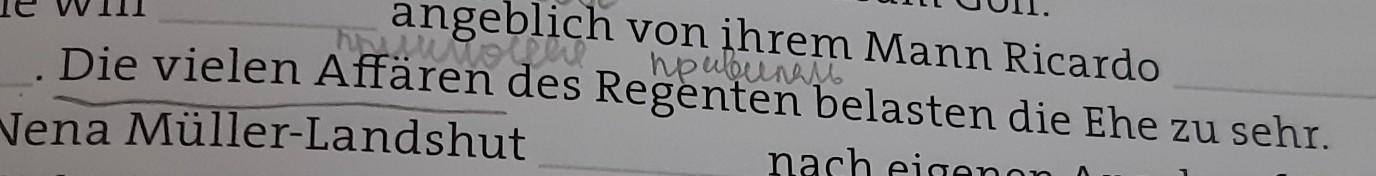 angeblich von ihrem Mann Ricardo
. Die vielen Affären des Regenten belasten die Ehe zu sehr.
Nena Müller-Landshut nach